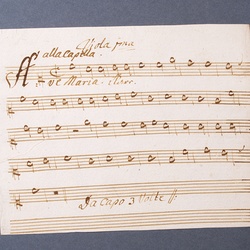 Viola pma
alla capella.
Ave Maria.
Da Capo 3 Volte